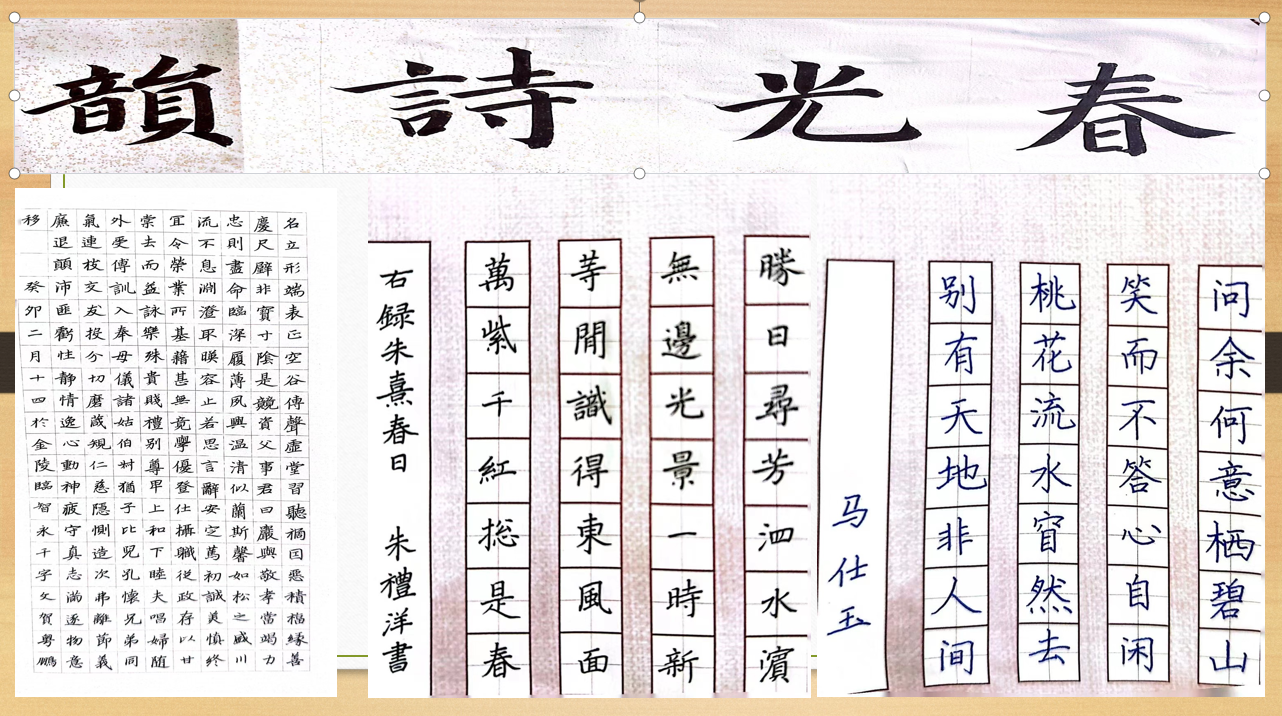 春光詩韻
问余何意栖碧山
笑而不答心自闲
桃花流水窅然去
别有天地非人间
马仕玉
勝日尋芳泗水濱
無邊光景一時新
等間識得東風面
萬紫千紅総是春
右録朱熹春日 朱禮洋書
名立形端表正空谷傳聲虛堂習聽禍因惡積福緣善
慶尺璧非寶寸陰是競資父事君曰嚴與敬孝當竭力
忠則盡命臨深履薄夙興溫清似蘭斯馨如松之盛川
流不息淵澄取暎容止若思言辭安定篤初誠美慎終
宜令榮業所基藉甚無竟學優登仕攝職從政存以甘
棠去而益詠樂殊貴賤禮別尊卑上和下睦夫唱婦随
外受傅訓入奉母儀諸姑伯叔猶子比兒孔懷兄弟同
氣連枝交友投分切磨箴規仁慈隱惻造次弗離節義
廉退顛沛匪虧性静情逸心動神疲守真志滿逐物意
移 癸卯二月十四於金陵臨智永千字文賀粤鵬